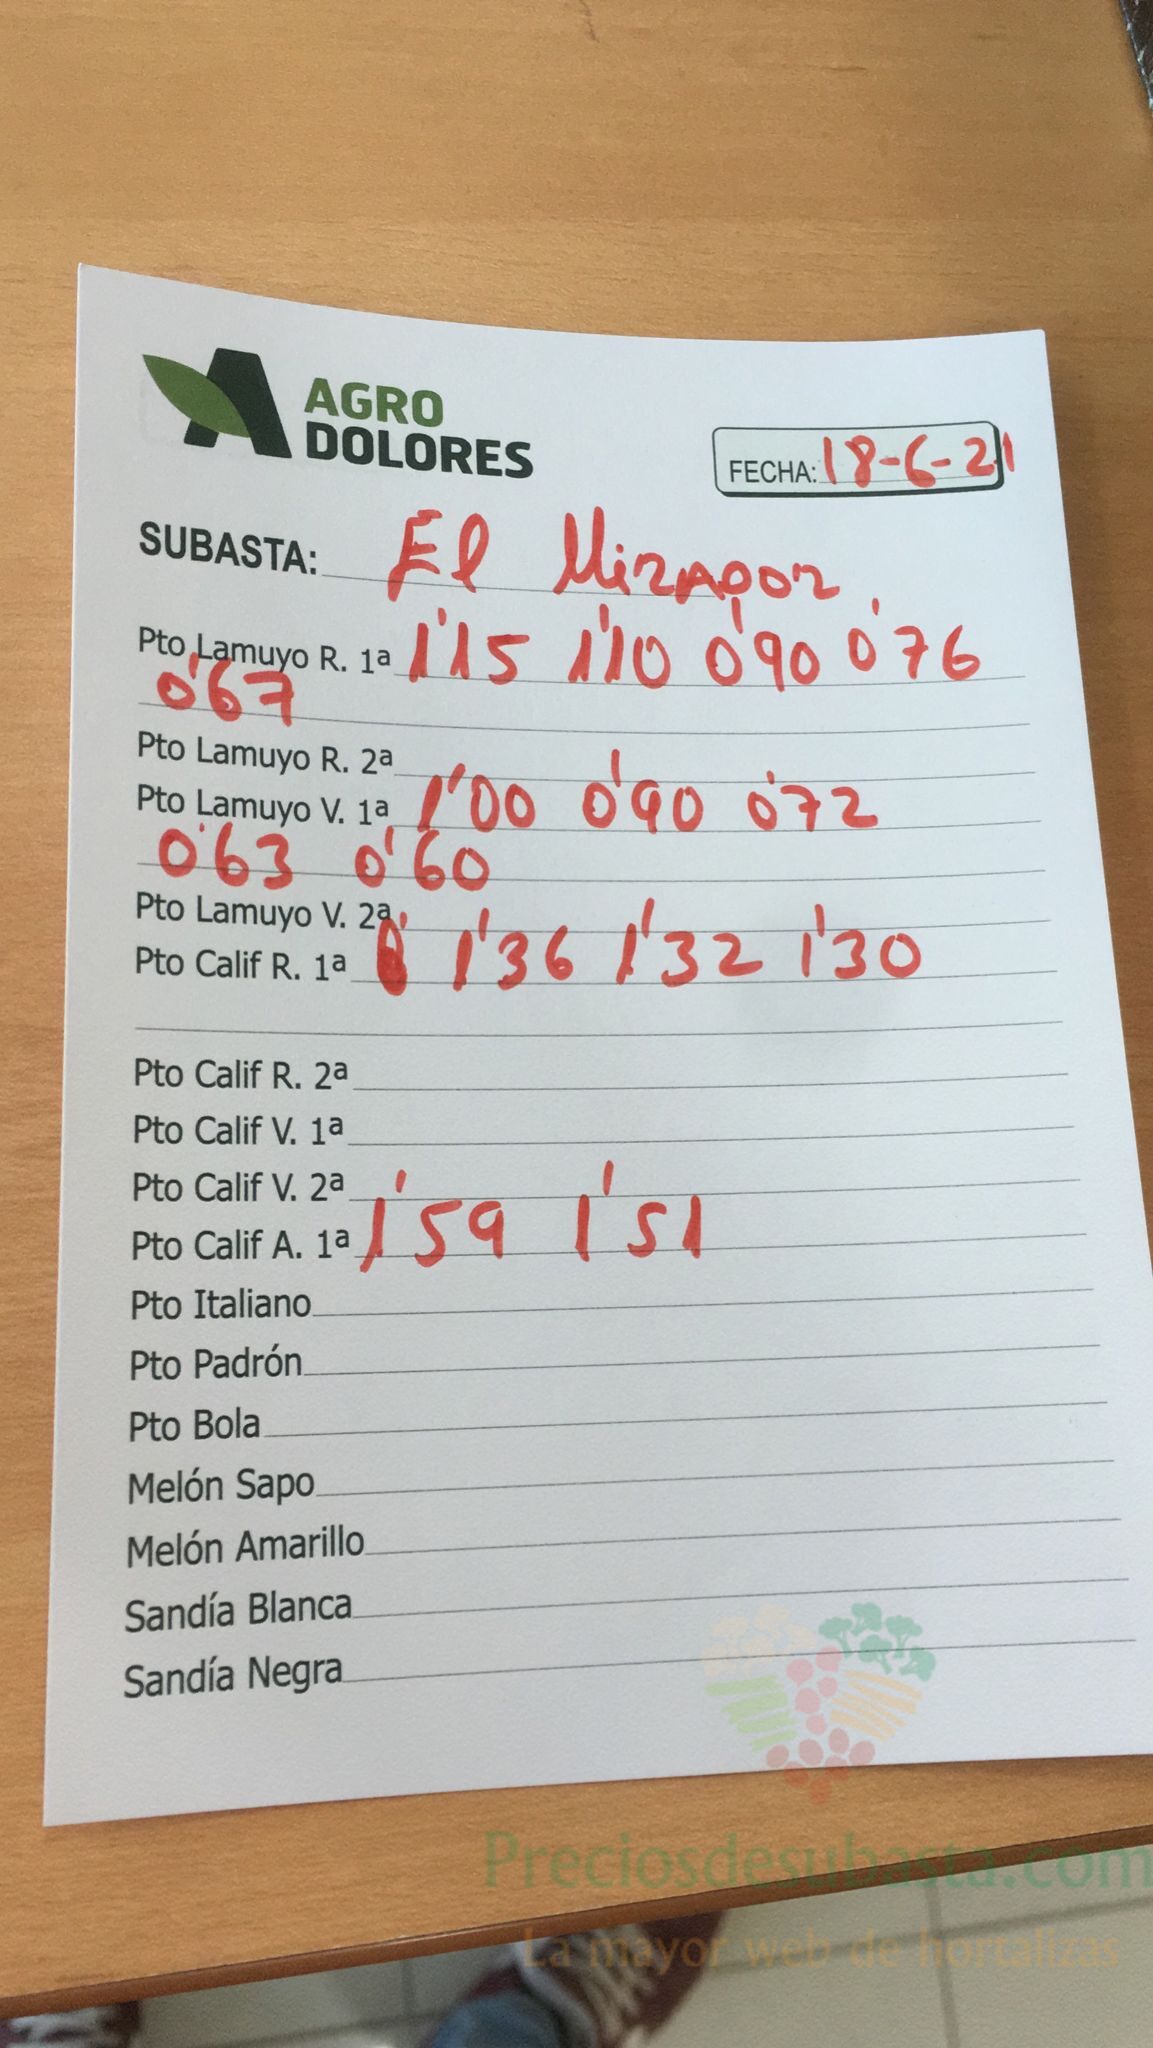 AGRO
DOLORES
FECHA: 18-6-21
SUBASTA: El Mirador
Pto Lamuyo R. 1ª 1'15 1'10 0'90 0'76
0'67
Pto Lamuyo R. 2ª
Pto Lamuyo V. 1ª 1'00 0'90 0'72
0'63 0'60
Pto Lamuyo V. 2ª
Pto Calif R. 1ª 1'36 1'32 1'30
Pto Calif R. 2ª
Pto Calif V. 1ª
Pto Calif V. 2ª
Pto Calif A. 1ª 1'59 1'51
Pto Italiano
Pto Padrón
Pto Bola
Melón Sapo
Melón Amarillo
Sandía Blanca
Sandía Negra
Preciosdesubasta.com
La mayor web de hortalizas